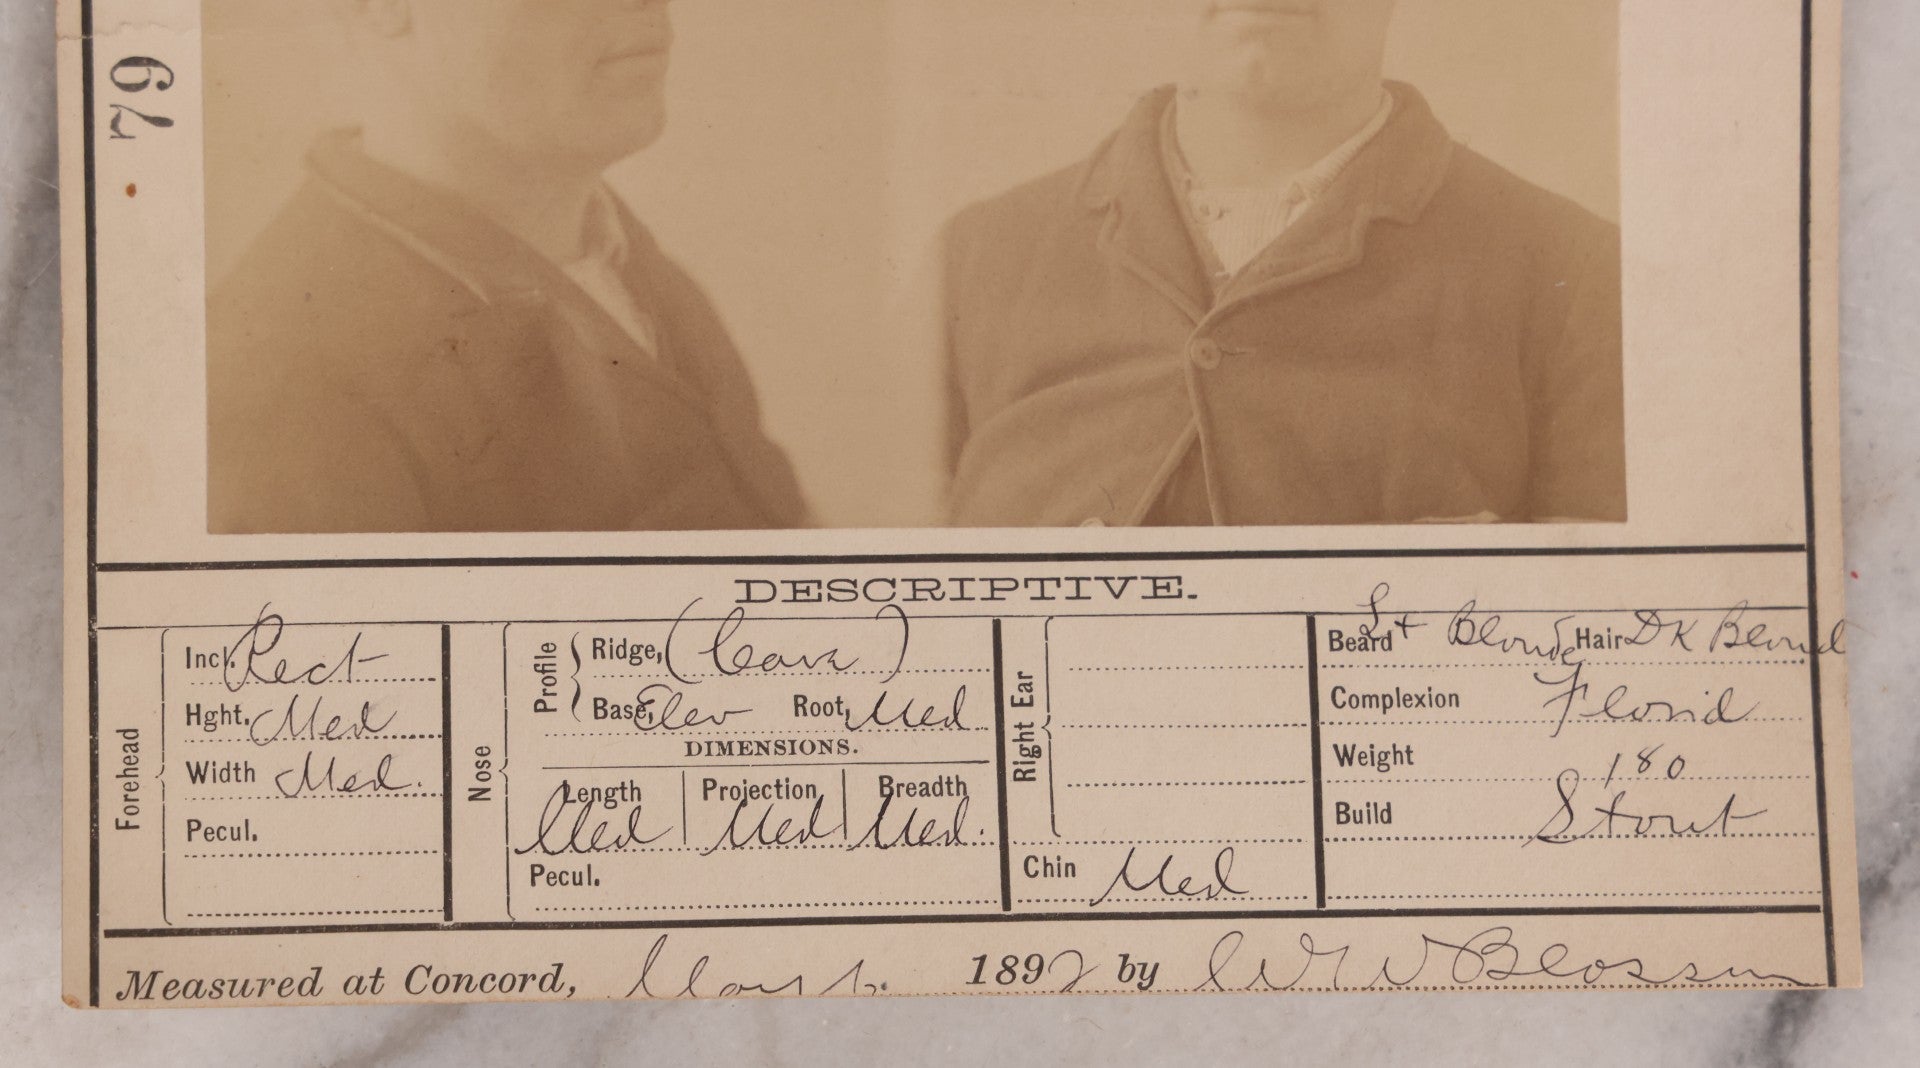 79
DESCRIPTIVE.
Forehead
Incl. Rect
Hght. Med
Width Med.
Pecul.
Nose
Profile
Ridge, (Cava)
Base, Elev Root, Med
DIMENSIONS.
Length Projection Breadth
Med Med Med.
Pecul.
Right Ear
Chin Med
Beard Lt Blonde Hair DK Blond
Complexion Florid
Weight 180
Build Stout
Measured at Concord, 1892 by Blossom